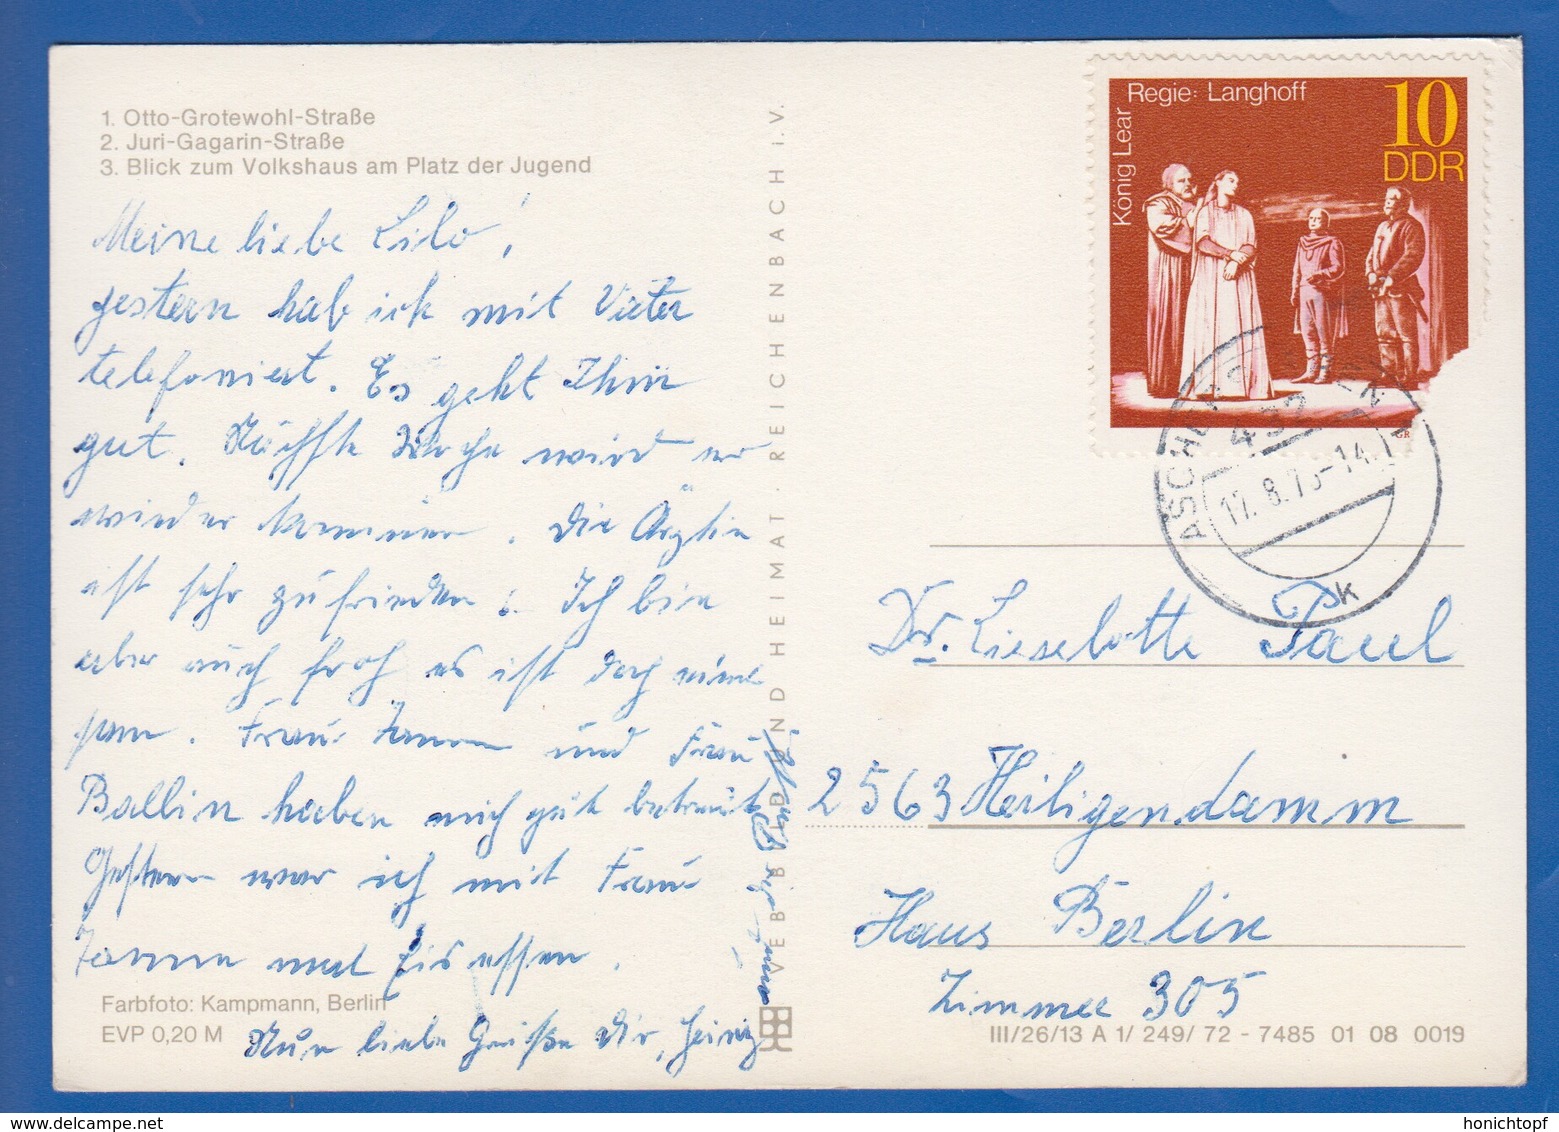 1. Otto-Grotewohl-Straße
2. Juri-Gagarin-Straße
3. Blick zum Volkshaus am Platz der Jugend
Meine liebe Lilo!
gestern hab ich mit Vater
telefoniert. Es geht Ihm
gut. Nächste Woche wird er
wieder kommen. Die Ärztin
ist sehr zufrieden. Ich bin
aber auch froh es ist doch
Frau und Frau
Ballin haben mich gut betreut
Gestern war ich mit Frau
mal Eis essen.
Nun liebe Grüße Dir, Heinz
und der
Farbfoto: Kampmann, Berlin
EVP 0,20 M
VEB BILD UND HEIMAT REICHENBACH i. V.
König Lear
Regie: Langhoff
10
DDR
GR
ASCHERSLEBEN 1
432
17.8.73-14
k
Dr. Lieselotte Paul
2563 Heiligendamm
Haus Berlin
Zimmer 305
III/26/13 A 1/ 249/ 72 - 7485 01 08 0019
honichtopf